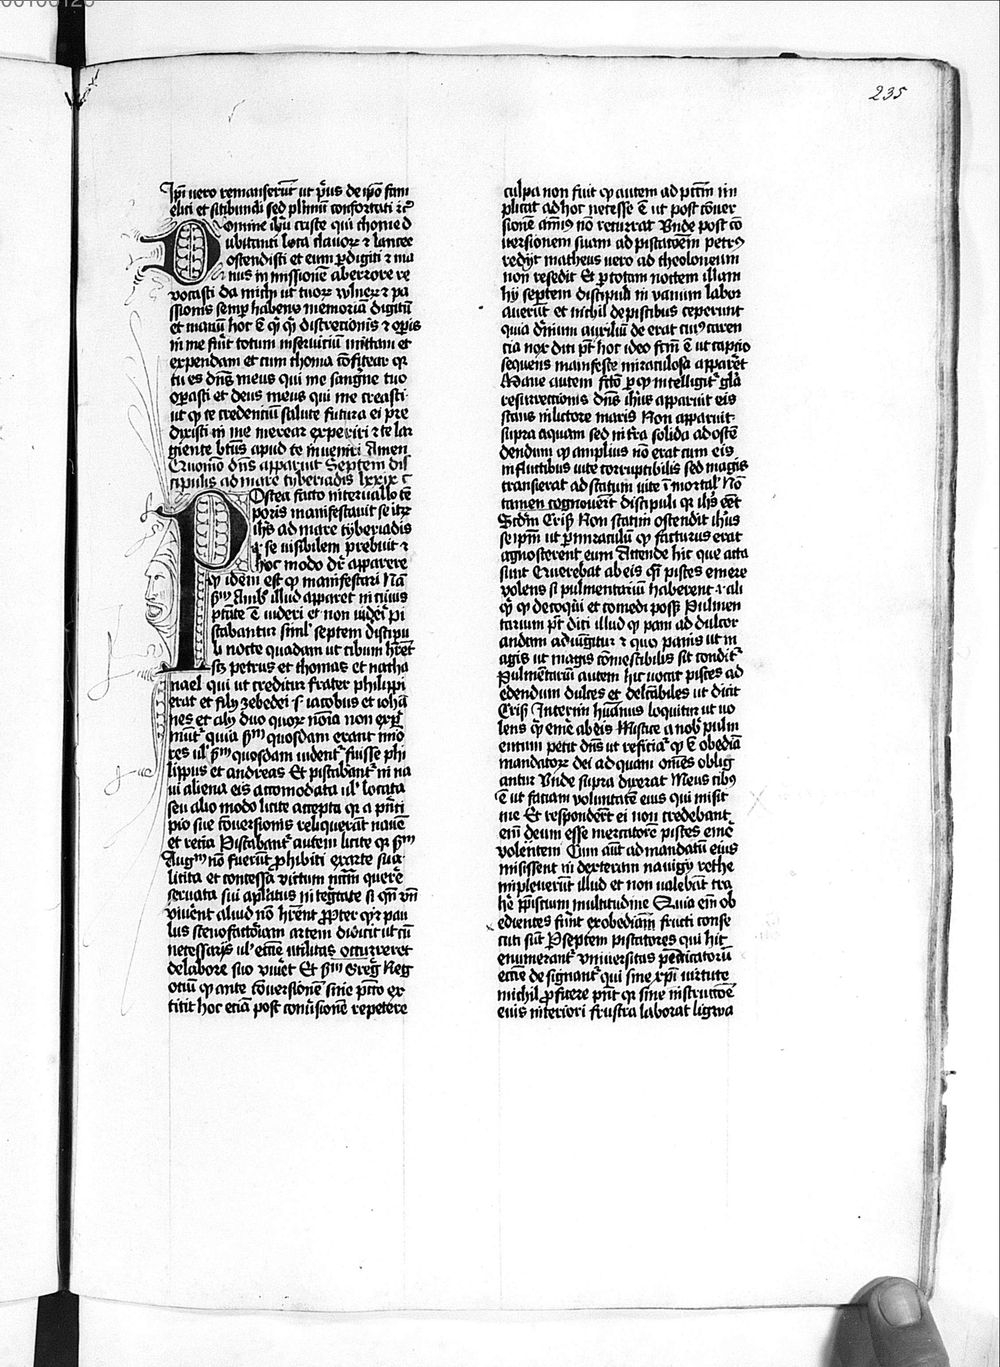 235
Ip̄i vero remanserūt ut pͥus de ip̄o fam
elici et sitibundi sed pl̄imū confortati ⁊cͣ
Domine ih̄u criste qui thome d
ubitanti loca clauoꝝ ⁊ lancee
ostendisti et eum ꝑ digiti ⁊ ma
nus in missionē ab errore re
vocasti da michi ut tuoꝝ vulneꝝ ⁊ pa
ssionis semꝑ habens memoriā digitū
et manū hoc ē qͥ qͥ discretionis ⁊ oꝑis
in me fūit totum in servitiū mittam et
expendam et cum thoma cōfitear qꝛ
tu es dn̄s meus qui me sangͥne tuo
oꝑasti et deus meus qui me creasti
ut qͥ te credentiū salute futura ei pre
dixisti in me merear experiri ⁊ te lar
giente btūs apud te inveniri Amen
Quomō dn̄s apparuit Septem dis
cipulis ad mare tyberiadis lxxix c
Postea facto intervallo tē
poris manifestavit se itꝝ
ih̄s ad mare tyberiadis
.i. se visibilem prebuit ⁊
hoc modo dr̄ apparere
qͥ idem est qͥ manifestari Nā
ẜm Amb̄ illud apparet in cuius
ptāte ē videri et non videri pi
scabantur siml̄ septem discipu
li nocte quadam ut cibum hr̄ent
scꝫ petrus et thomas et natha
nael qui ut creditur frater philippi
erat et filij zebedei .s. iacobus et iohā
nes et alij duo quoꝝ noīa non expͥ
mūt' quia ẜm quosdam erant mīo
res ul' ẜm quosdam vident' fuisse phi
lippus et andreas Et piscabant' in na
vi aliena eis accomodata ul' locata
seu alio modo licite accepta qꝛ a pn̄ci
pio sue cōversionis reliquerāt nauē
et recia Piscabant' autem licite qꝛ ẜm
Augm̄ nō fuerūt ꝓhibiti ex arte sua
licita et concessa victum nc̄m querē
servata sui apl̄atus integͥtate si qn̄ vn̄
viverēt aliud nō hr̄ent ꝓpter qͥꝝ pau
lus stenofactoriam artem didicit ut cū
necessariꝫ ul' ecc̄ie utilitas occurreret
de labore suo vivēt Et ẜm Gregͥ Neg
otiū qͥ ante cōversionē sine pctō ex
titit hoc etiā post conūsionē repetere
culpa non fuit qͥ autem ad pctm̄ im
plicat ad hoc necesse ē ut post cōver
sionē animus nō recurrat Vnde post cō
versionem suam ad piscatōem petrꝯ
redijt matheus vero ad theoloneum
non resedit Et ꝑ totam noctem illam
hij septem discipuli in vanum labor
auerūt et nichil de piscibus ceperunt
quia dīnum auxiliū de erat cuiꝯ caren
cia nox dici pt̄ hoc ideo fc̄m ē ut captio
sequens manifeste miraculosa apparēt
Mane autem fctō ꝑ qͥ intelligit' gl̄a
resurrectionis dn̄s ih̄us apparuit eis
stans in litore maris Non apparuit
supra aquam sed in fra solida ad ostē
dendum qͥ amplius nō erat cum eis
in fluctibus vite corruptibilis sed magis
transierat ad statum vite ī mortal' Nō
tamen cognouēnt discipuli qꝛ ih̄s eēt
Scdm Crisͥ Non statim ostendit ih̄us
se ip̄m ut ꝑ miraculū qͥ facturus erat
agnoscerent eum Attende hic que acta
sunt Querebat ab eis qn̄ pisces emere
volens si pulmentariū haberent .i. ali
qͥ qͥ decoqͥi et comedi poss̄ Pulmen
tarium pt̄ dici illud qͥ pani ad dulcor
andum adiūgitur ⁊ quo panis ut m
agis ut magis cōmestibilis sit condit'
Pulmētariū autem hic uocat pisces ad
edendum dulces et delcābiles ut dicit
Crisͥ Interim hūanus loquitur ut vo
lens qͥ emē ab eis Mistice a nob' pulm
entum petit dn̄s ut reficiat' qͥ ē obediā
mandatoꝝ dei ad quam om̄es oblig
antur Vnde supra dixerat Meus cibꝯ
ē ut faciam voluntatē eius qui misit
me Et respondērt ei non credebant
em̄ deum esse mercatorē pisces emē
volentem Cum aūt ad mandatū eius
misissent in dexteram navigij rethe
impleuerūt illud et non ualebāt tra
hē p̄ piscium multitudine Quia em̄ ob
edientes fūnt ex obediam̄ fructi conse
cuti sūt Ꝑ septem piscatores qui hic
enumerant' vniuersitas pͥdicatorū
ecc̄ie designant' qui sine xp̄i virtute
nichil ꝓficere pn̄t qꝛ sine instructōe
eius interiori frustra laborat ligwa